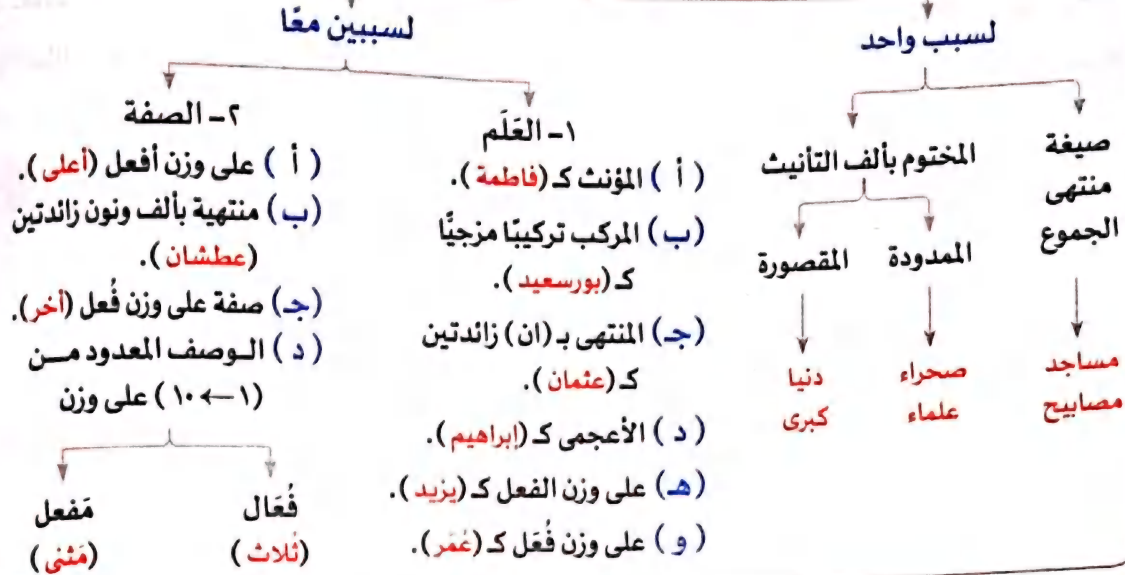 لسبب واحد
صيغة
منتهى
الجموع
مساجد
مصابيح
المختوم بألف التأنيث
الممدودة
صحراء
علماء
المقصورة
دنيا
كبرى
لسببين معًا
١- العَلَم
( أ ) المؤنث كـ (فاطمة).
(ب) المركب تركيبًا مزجيًّا
كـ (بورسعيد).
(جـ) المنتهى بـ (ان) زائدتين
كـ (عثمان).
( د ) الأعجمى كـ (إبراهيم).
(هـ) على وزن الفعل كـ (يزيد).
( و ) على وزن فُعَل كـ (عُمَر).
٢- الصفة
( أ ) على وزن أفعل (أعلى).
(ب) منتهية بألف ونون زائدتين
(عطشان).
(جـ) صفة على وزن فُعل (أخر).
( د ) الوصف المعدود من
(١ ← ١٠) على وزن
فُعَال
(ثُلاث)
مَفعل
(مَثنى)